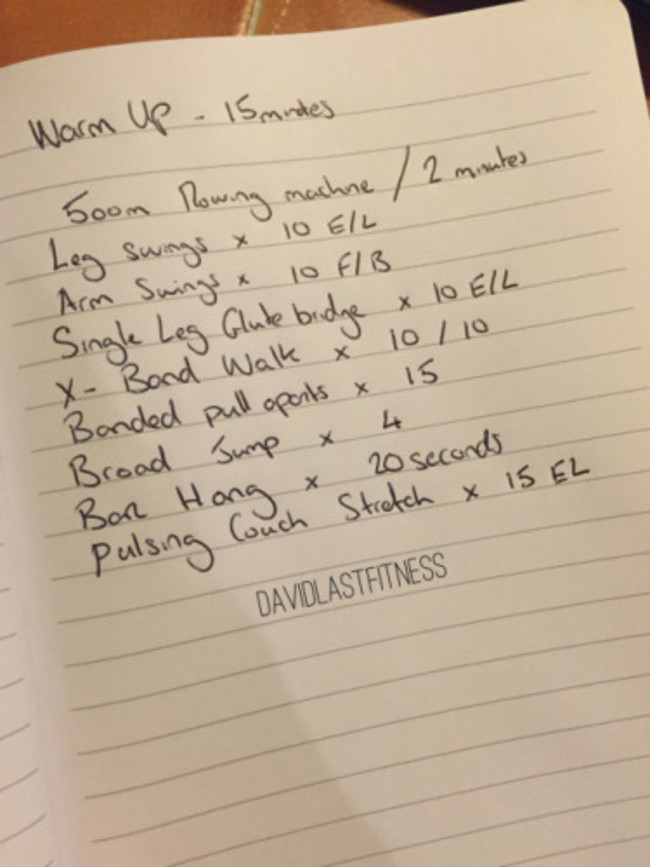 Warm Up - 15 minutes
500m Rowing machine / 2 minutes
Leg swings x 10 E/L
Arm Swings x 10 F/B
Single Leg Glute bridge x 10 E/L
X- Band Walk x 10 / 10
Banded pull aparts x 15
Broad Jump x 4
Bar Hang x 20 seconds
Pulsing Couch Stretch x 15 EL
DAVIDLASTFITNESS